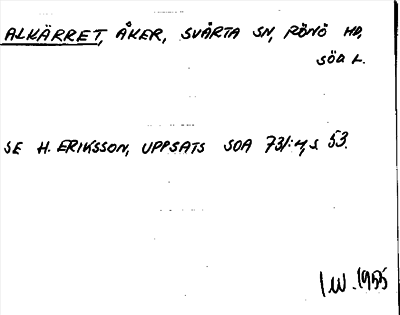 ALKÄRRET, ÅKER, SVÄRTA SN, RÖNÖ HD,
SÖD L.
SE H. ERIKSSON, UPPSATS SOA 73/: s 53.
IW. 1955